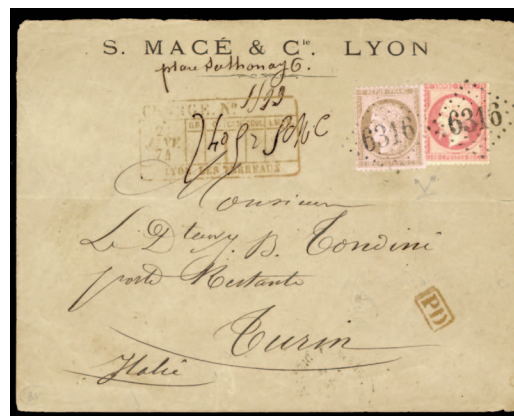 S. MACÉ & Cie. LYON
place Sathonay 6.
CHARGÉ No 1193
LYON LES TERREAUX
6316 6316
Monsieur
Le Dteur J. B. Tondini
poste Restante
Turin
Italie
PD